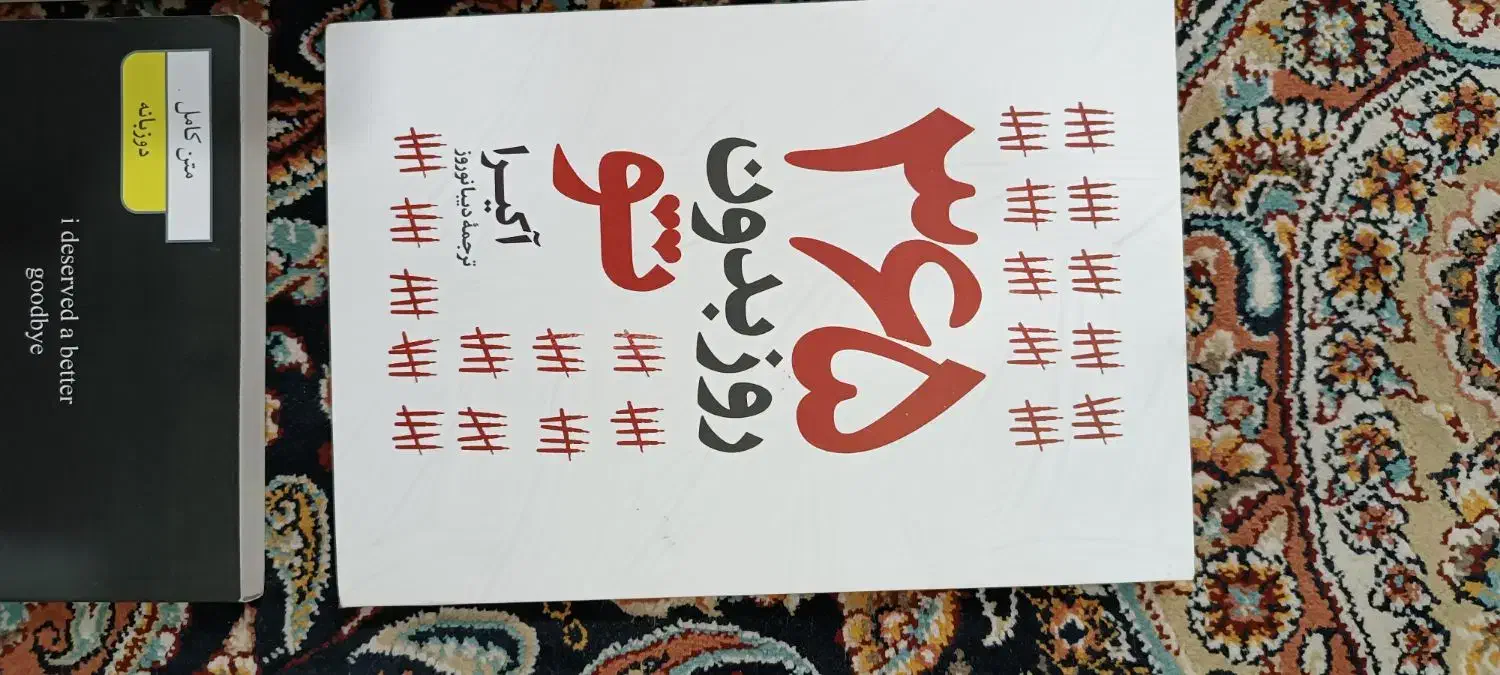 ۳۶۵
روز بدون
تو
آکیرا
ترجمهٔ دیبا نوروز
متن کامل
دوزبانه
i deserved a better
goodbye